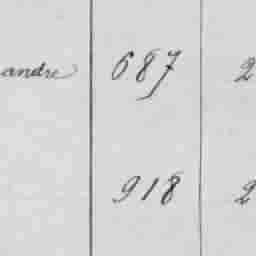 andre 687 2
918 2